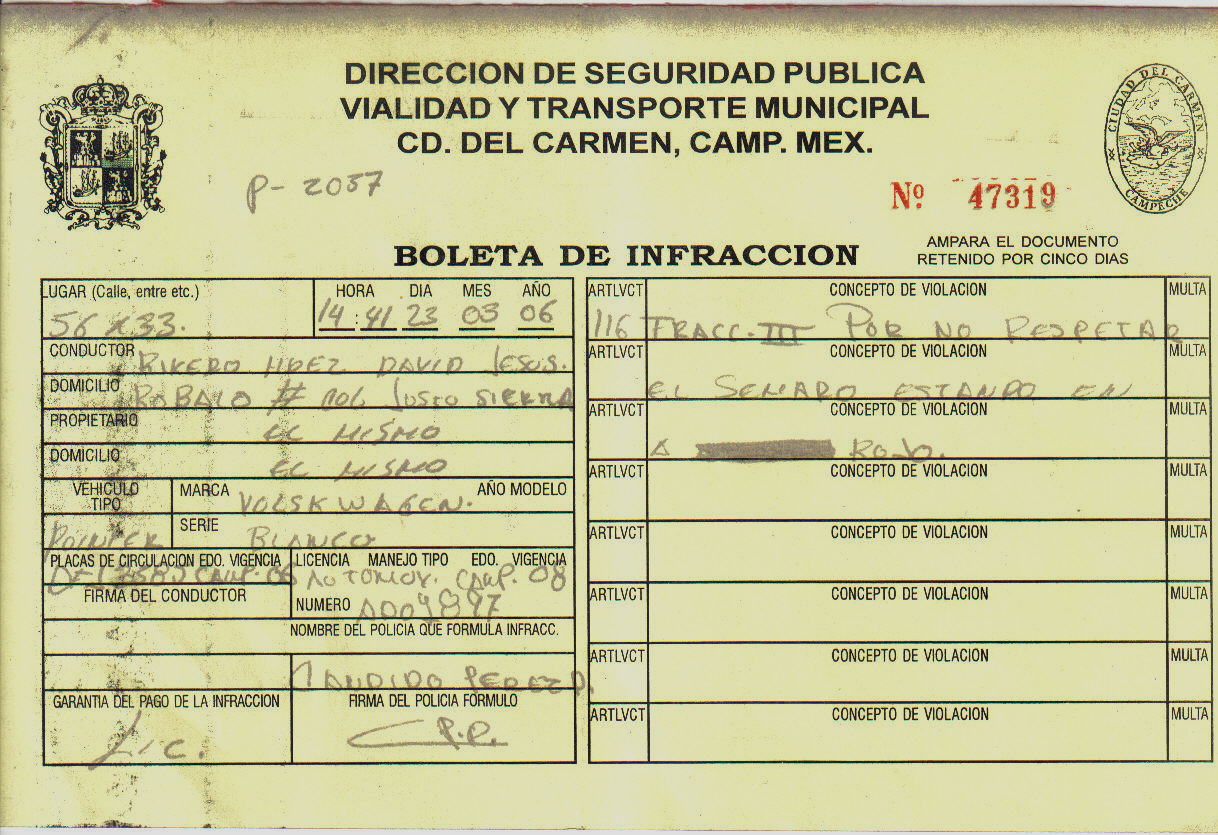 DIRECCION DE SEGURIDAD PUBLICA
VIALIDAD Y TRANSPORTE MUNICIPAL
CD. DEL CARMEN, CAMP. MEX.
CIUDAD DEL CARMEN
CAMPECHE
P- 2037
Nº 47319
BOLETA DE INFRACCION
AMPARA EL DOCUMENTO
RETENIDO POR CINCO DIAS
LUGAR (Calle, entre etc.) HORA DIA MES AÑO
56 x 33. 14:41 23 03 06
CONDUCTOR DAVID JESUS.
DOMICILIO ROBALO # JUSTO SIERRA
PROPIETARIO EL MISMO
DOMICILIO EL MISMO
VEHICULO TIPO MARCA VOLSKWAGEN. AÑO MODELO
POINTER SERIE BLANCO
PLACAS DE CIRCULACION EDO. VIGENCIA LICENCIA MANEJO TIPO EDO. VIGENCIA
CAMP. 06 AUTOMOV. CAMP. 08
FIRMA DEL CONDUCTOR NUMERO
NOMBRE DEL POLICIA QUE FORMULA INFRACC.
CANDIDO PEREZ
GARANTIA DEL PAGO DE LA INFRACCION FIRMA DEL POLICIA FORMULO
Lic. C.P.P.
ARTLVCT CONCEPTO DE VIOLACION MULTA
116 FRACC. III POR NO RESPETAR
ARTLVCT CONCEPTO DE VIOLACION MULTA
EL SEMARO ESTANDO EN
ARTLVCT CONCEPTO DE VIOLACION MULTA
A ROJO.
ARTLVCT CONCEPTO DE VIOLACION MULTA
ARTLVCT CONCEPTO DE VIOLACION MULTA
ARTLVCT CONCEPTO DE VIOLACION MULTA
ARTLVCT CONCEPTO DE VIOLACION MULTA
ARTLVCT CONCEPTO DE VIOLACION MULTA